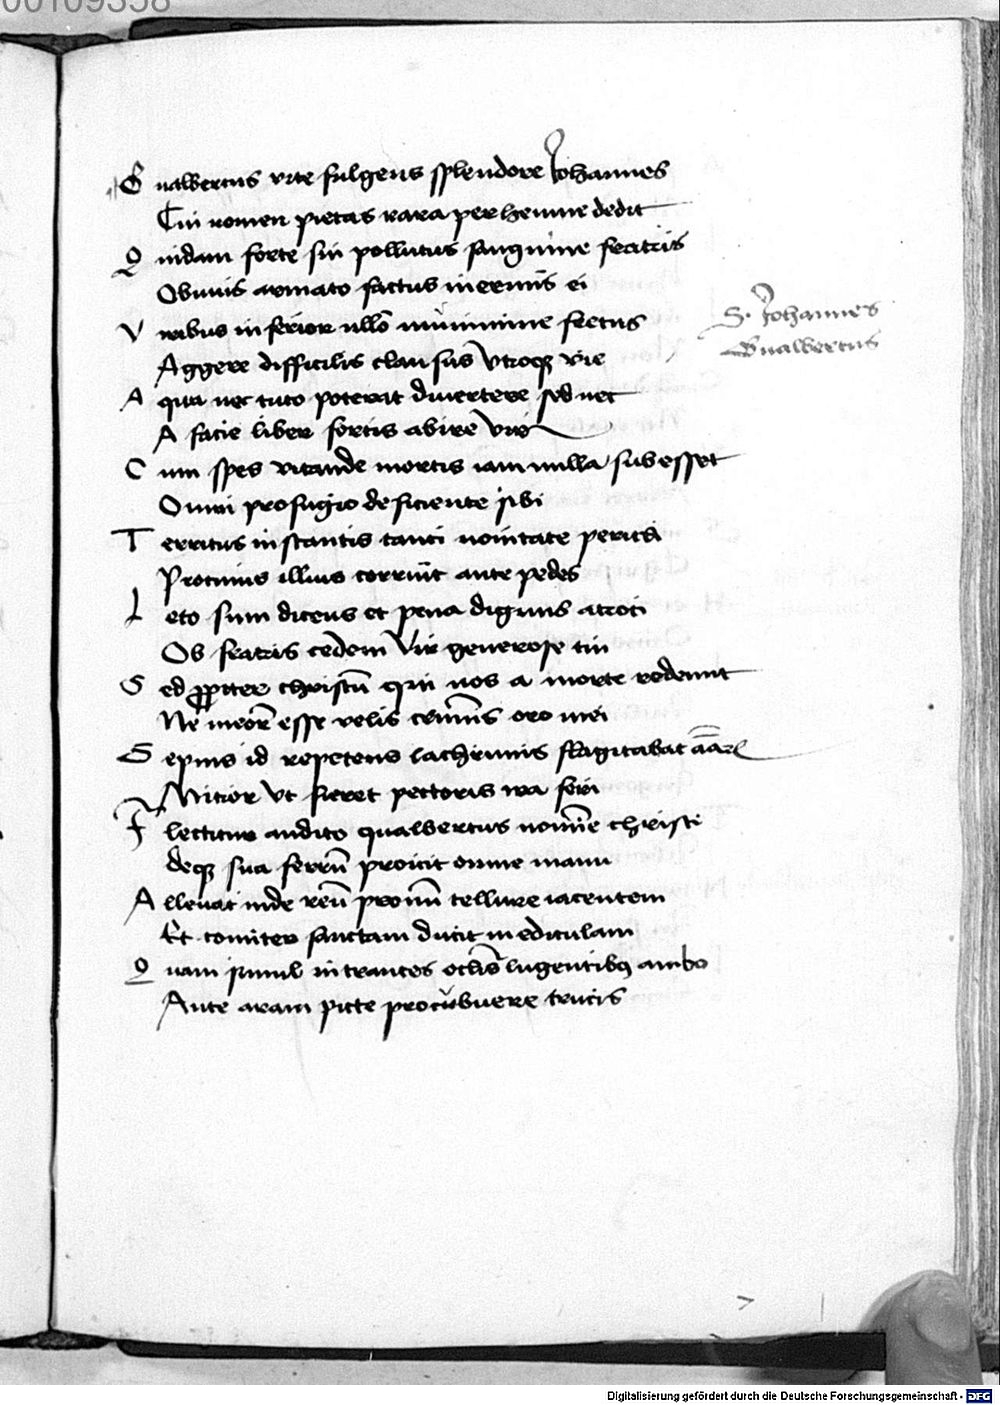 00109358
Gualbertus vite fulgens splendore Johannes
Cui nomen pietas rara perhenne dedit
Quidam forte sui pollutus sanguine fratris
Obuius armato factus inermis ei
Viribus inferior nullo munimine fretus
Aggere difficilis clausus vtroque vie
A qua nec tuto poterat diuertere sed nec
A facie liber fortis abire viri
Cum spes vitande mortis iam nulla subesset
Omni profugio deficiente sibi
Territus instantis tanti nouitate pericli
Protinus illius corruit ante pedes
Leto sum dicens et pena dignus atroci
Ob fratris cedem vir generose tui
Sed propter christum qui nos a morte redemit
Ne meorum esse velis oro mei
Sepius id repetens lachrimis flagitabat
Mitior vt fieret pectoris ira feri
Flectitur audito gualbertus nomine christi
deque sua ferrum proicit omne manu
Alleuat inde reum pronum tellure iacentem
Et comiter sanctam ducit in ediculam
Quam simul intrantes oculis lugentibus ambo
Ante aram picte procubuere crucis
S. Johannes
Gualbertus
Digitalisierung gefördert durch die Deutsche Forschungsgemeinschaft - DFG